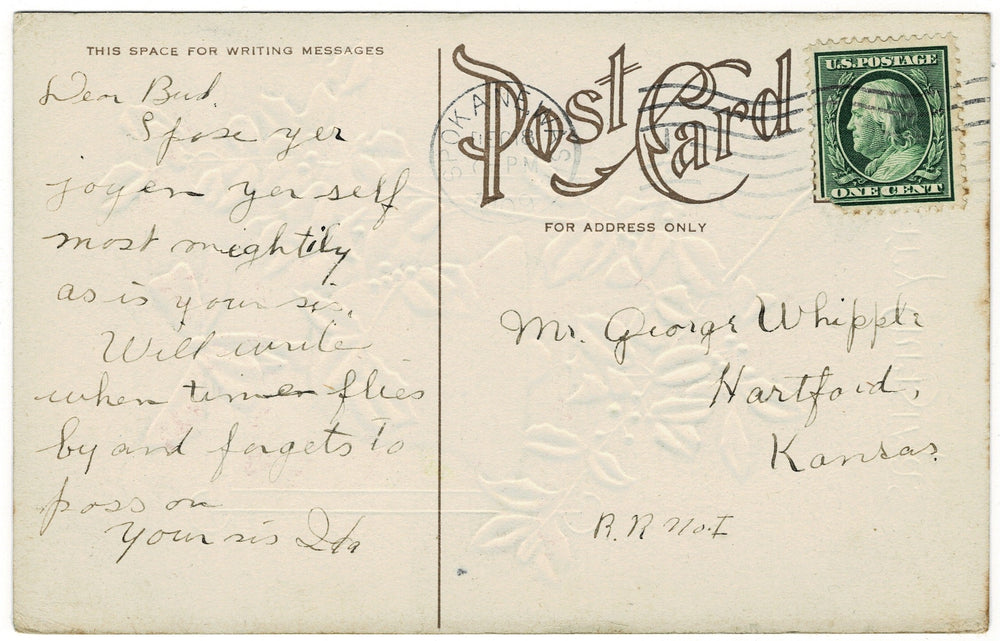 THIS SPACE FOR WRITING MESSAGES
Dear Bud.
S'pose yer
joyen yerself
most mightily
as is your sis.
Will write
when time flies
by and forgets to
pass on
Your sis Ida
Post Card
SPOKANE WASH
PM
FOR ADDRESS ONLY
U.S. POSTAGE
ONE CENT
Mr. George Whipple
Hartford,
Kansas.
R.R No. I